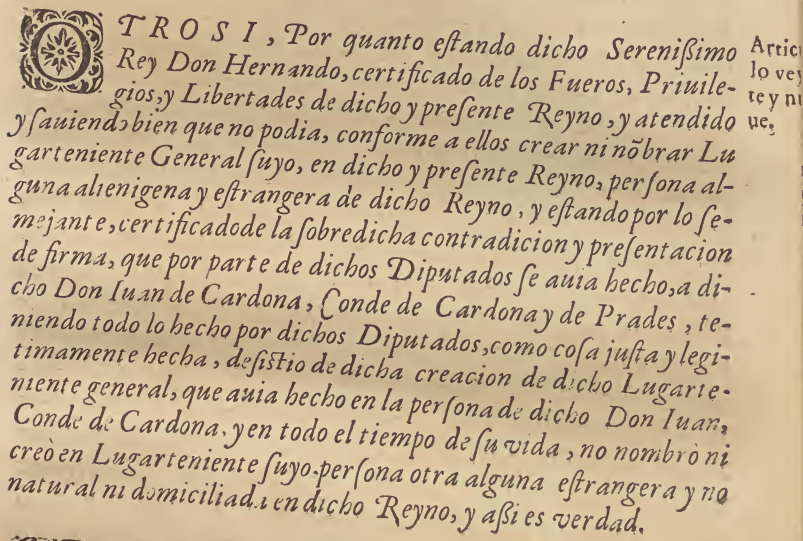 OTROSI, Por quanto eſtando dicho Sereniſsimo
Rey Don Hernando, certificado de los Fueros, Priuile-
gios, y Libertades de dicho y preſente Reyno, y atendido
y ſauiendo bien que no podia, conforme a ellos crear ni nõbrar Lu
garteniente General ſuyo, en dicho y preſente Reyno, perſona al-
guna alienigena y eſtrangera de dicho Reyno, y eſtando por lo ſe-
mejante, certificado de la ſobredicha contradicion y preſentacion
de firma, que por parte de dichos Diputados ſe auia hecho, a di-
cho Don Iuan de Cardona, Conde de Cardona y de Prades, te-
niendo todo lo hecho por dichos Diputados, como coſa juſta y legi-
timamente hecha, deſiſtio de dicha creacion de dicho Lugarte-
niente general, que auia hecho en la perſona de dicho Don Iuan,
Conde de Cardona, y en todo el tiempo de ſu vida, no nombrò ni
creò en Lugarteniente ſuyo, perſona otra alguna eſtrangera y no
natural ni domiciliada en dicho Reyno, y aſsi es verdad.
Artic
lo vey
te y nu
ue,